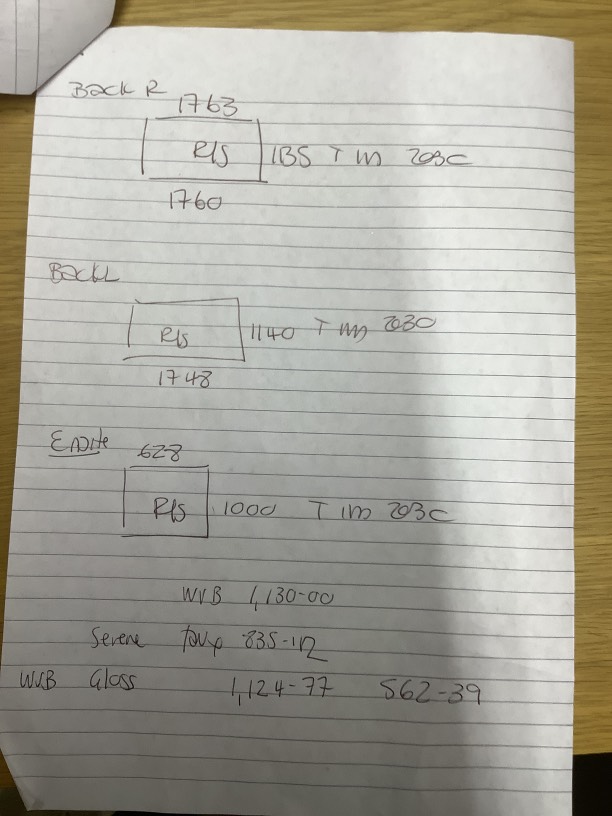 Back R
1763
R/S 1135 T IM 203C
1760
Back L
R/S 1140 T IM 203C
1748
Ensite
628
R/S 1000 T IM 203C
WVB 1,130-00
Serene 835-112
WVB Gloss 1,124-77 562-39